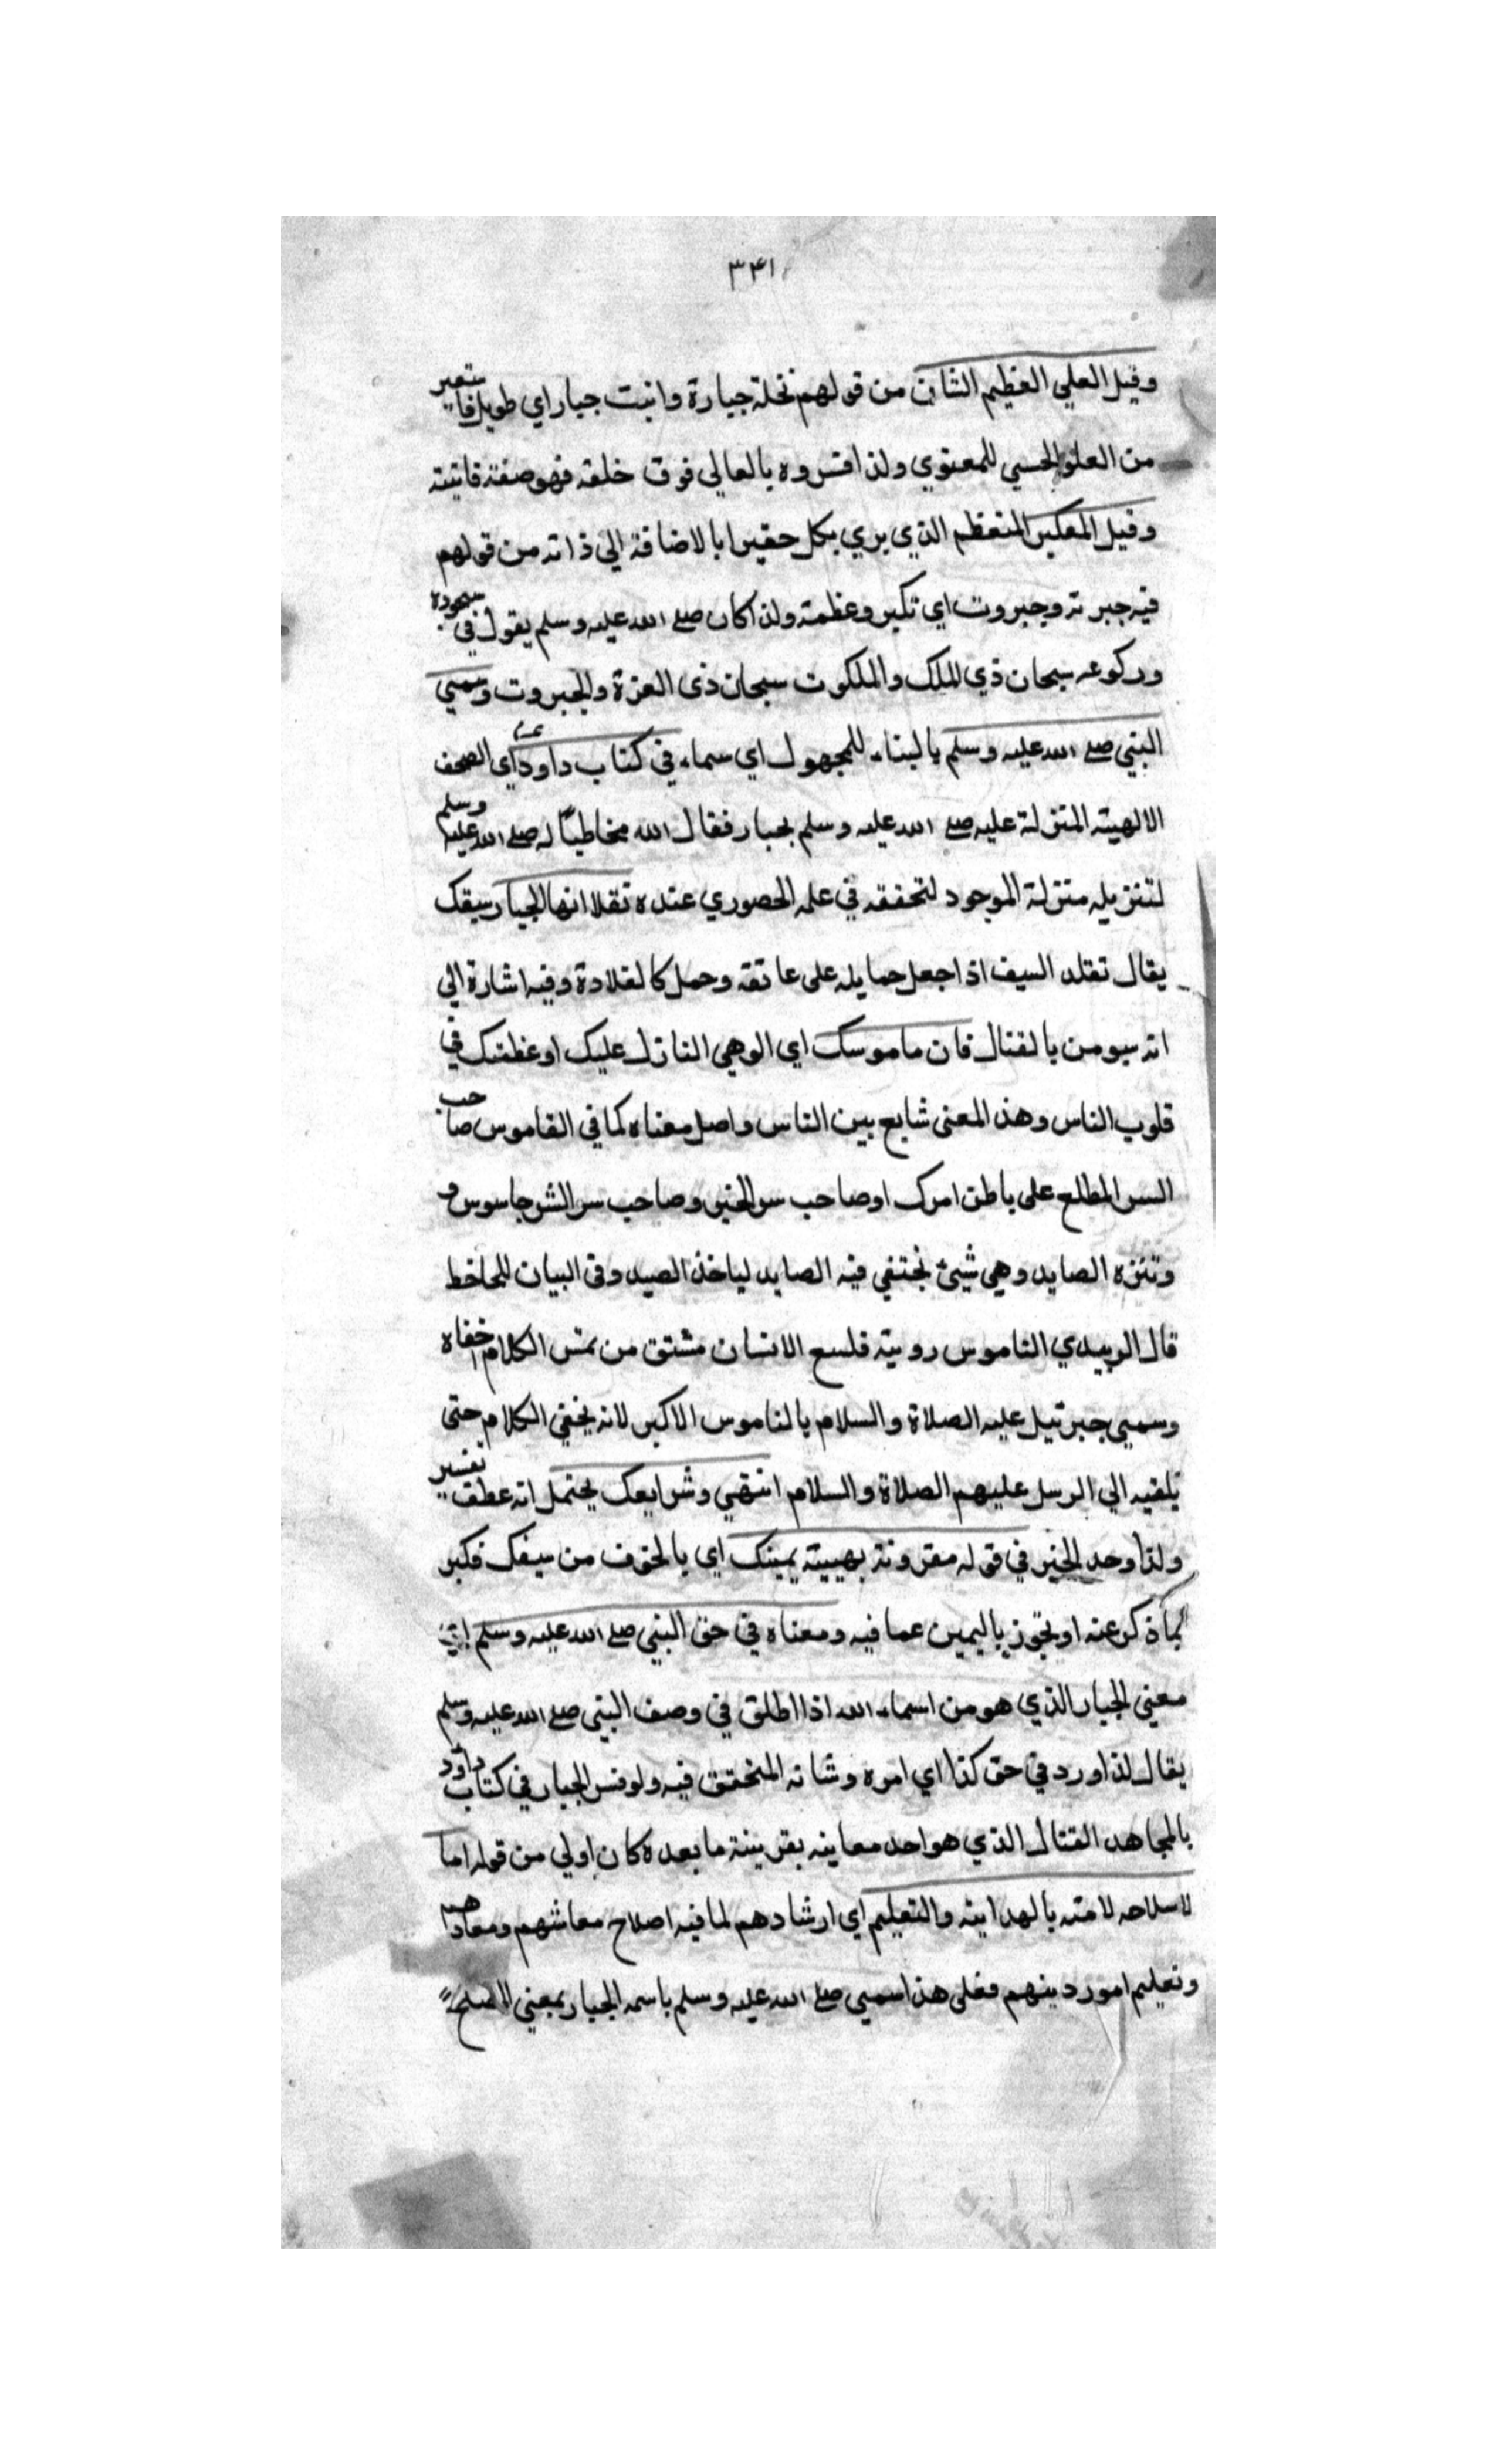 ٣٤١
وقيل العلي العظيم الشان من قولهم نخلة جبارة وانبت جبار اي طويل فاستعير
من العلو الحسي للمعنوي ولذا فسروه بالعالي فوق خلقه فهو صفة ذاتية
وقيل المتكبر المتعظم الذي يري بكل حقيرا بالاضافة الي ذاته من قولهم
فيه جبرته وجبروت اي تكبر وعظمة ولذا كان صلے الله عليه وسلم يقول في سجوده
وركوعه سبحان ذي الملك والملكوت سبحان ذى العزة والجبروت وسمي
النبي صلے الله عليه وسلم بالبناء للمجهول اي سماء في كتاب داود ع۔م اي الصحف
الالهية المتنزلة عليه صلے الله عليه وسلم بجبار فقال الله مخاطبًا له صلے الله عليه وسلم
لتنزيله منزلة الموجود لتحققه في علمه الحصوري عنده تقلد ايها الجبار سيفك
يقال تقلد السيف اذا جعل حمايله على عاتقه وحمل كالقلادة وفيه اشارة الي
انه سيومن بالقتال فان ماموسك اي الوحي النازل عليك او عظمتك في
قلوب الناس وهذا المعنى شايع بين الناس واصل معناه كما في القاموس صاحب
السر المطلع على باطن امرك او صاحب سر الخير وصاحب سر الشر جاسوس و
وتنزه الصايد وهي شيئ يختفي فيه الصايد لياخذ الصيد وفى البيان للجاحظ
قال الوبيدي الناموس رويية فلسع الانسان مشتق من نمس الكلام اخفاه
وسمي جبرئيل عليه الصلاة والسلام بالناموس الاكبر لانه يخفي الكلام حتى
يلقيه الي الرسل عليهم الصلاة والسلام انتهي وشرايعك يحتمل انه عطف تفسير
ولذا وحد الخير في قوله مقرونة بهيبته يمينك اي بالخوف من سيفك فكبر
بما ذكر عنه او تجوز باليمين عما فيه ومعناه في حق النبي صلے الله عليه وسلم اي
معني الجبار الذي هو من اسماء الله اذا اطلق في وصف النبي صلے الله عليه وسلم
يقال لذا ورد في حق كذا اي امره وشانه المتحقق فيه ولو فسر الجبار في كتاب داود
بالمجاهد القتال الذي هو احد معاينه بقرينة ما بعده كان اولي من قوله اما
لاسلاحه لامته بالهداية والتعليم اي ارشادهم لما فيه اصلاح معاشهم ومعادهم
وتعليم امور دينهم فعلى هذا سمي صلے الله عليه وسلم باسمه الجبار بمعني المصلح